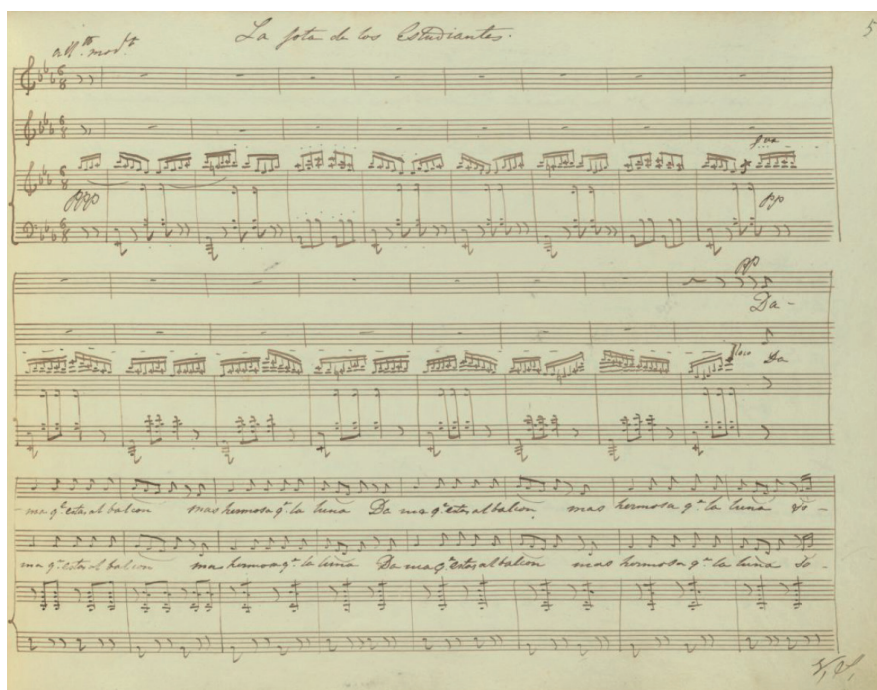 La Jota de los Estudiantes.
5
All.tto mod.to
8va
ppp
pp
pp
Da-
loco
Da
-ma q.e estas al balcon mas hermosa q.e la luna Da ma q.e estas al balcon mas hermosa q.e la luna So-
ma q.e estas al balcon mas hermosa q.e la luna Da ma q.e estas al balcon mas hermosa q.e la luna So-
V.S.